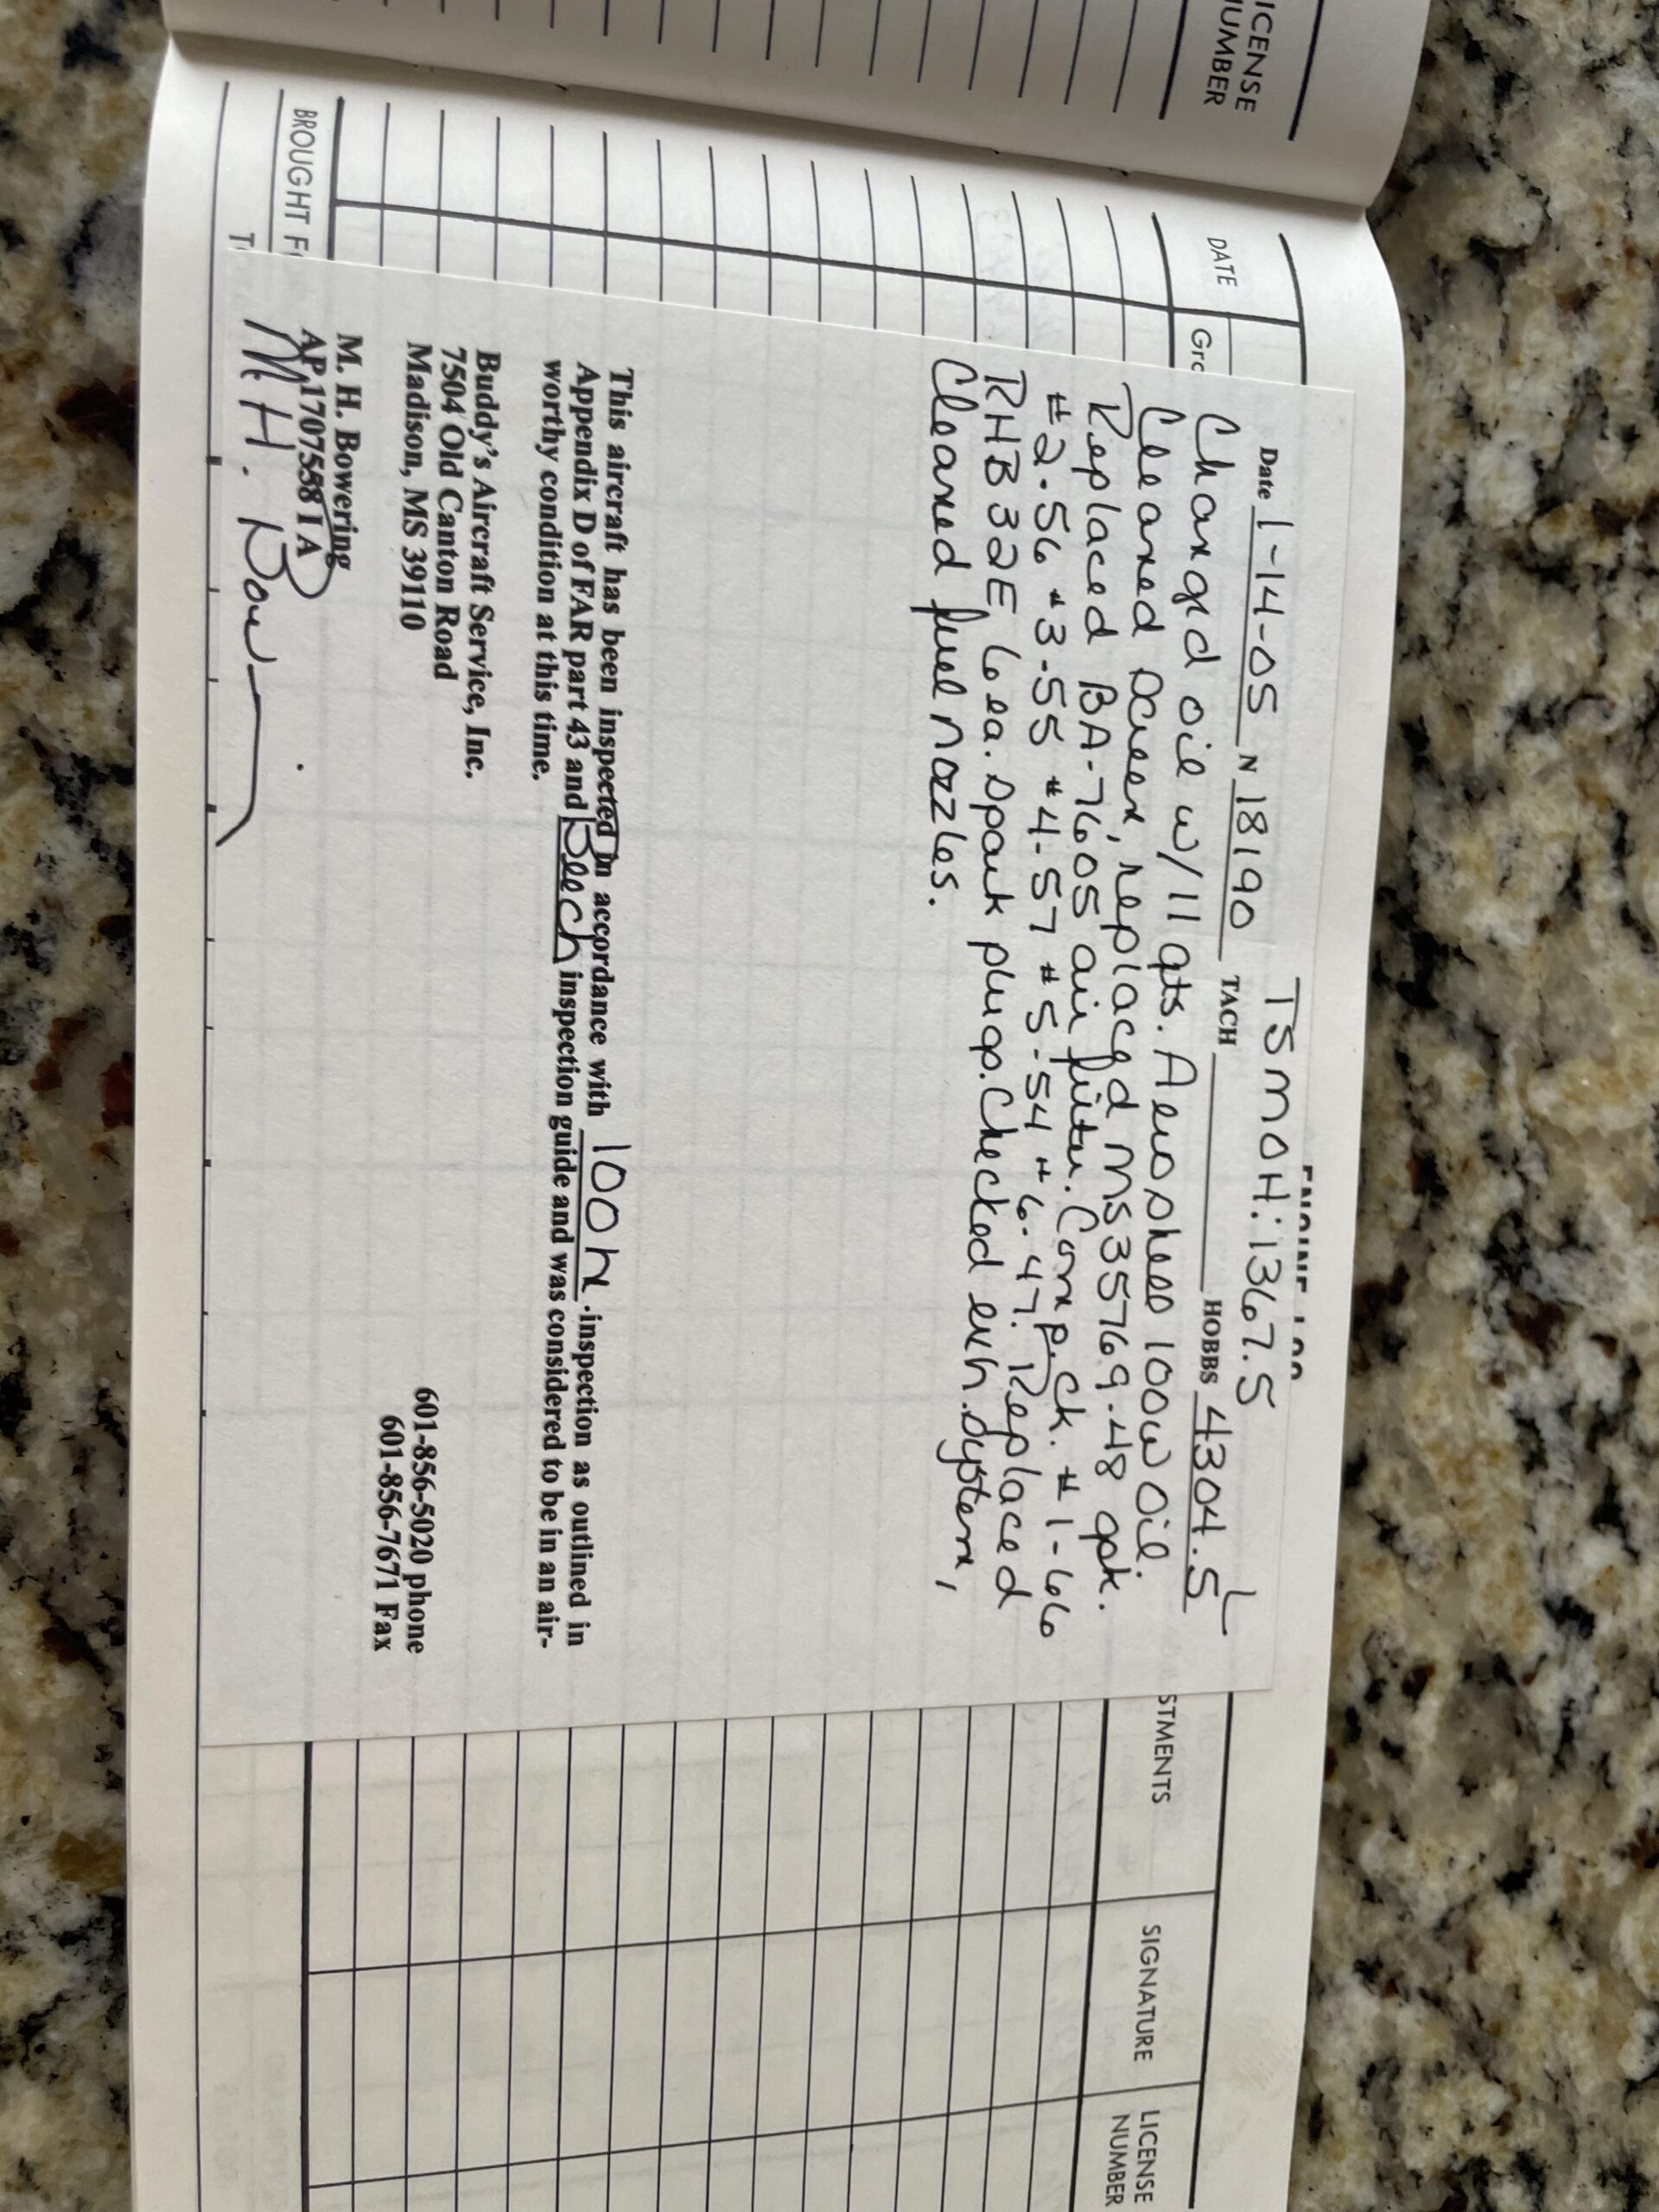 LICENSE
NUMBER
DATE
Gro
STMENTS
SIGNATURE
LICENSE
NUMBER
TSMOH: 1367.5 L
Date 1-14-05 N 18190 TACH HOBBS 4304.5
Changed oil w/11 qts. Aeroshell 100w oil.
Cleaned screen, replaced MS35769-48 gsk.
Replaced BA-7605 air filter. Comp. Ck. #1-66
#2-56 #3-55 #4-57 #5-54 #6-47. Replaced
RHB32E 6 ea. spark plugs. Checked exh. system,
Cleaned fuel nozzles.
This aircraft has been inspected in accordance with 100h inspection as outlined in
Appendix D of FAR part 43 and Beech inspection guide and was considered to be in an air-
worthy condition at this time.
Buddy's Aircraft Service, Inc.
7504 Old Canton Road 601-856-5020 phone
Madison, MS 39110 601-856-7671 Fax
M. H. Bowering
AP 1707558 I A
M. H. Bow
BROUGHT F
T